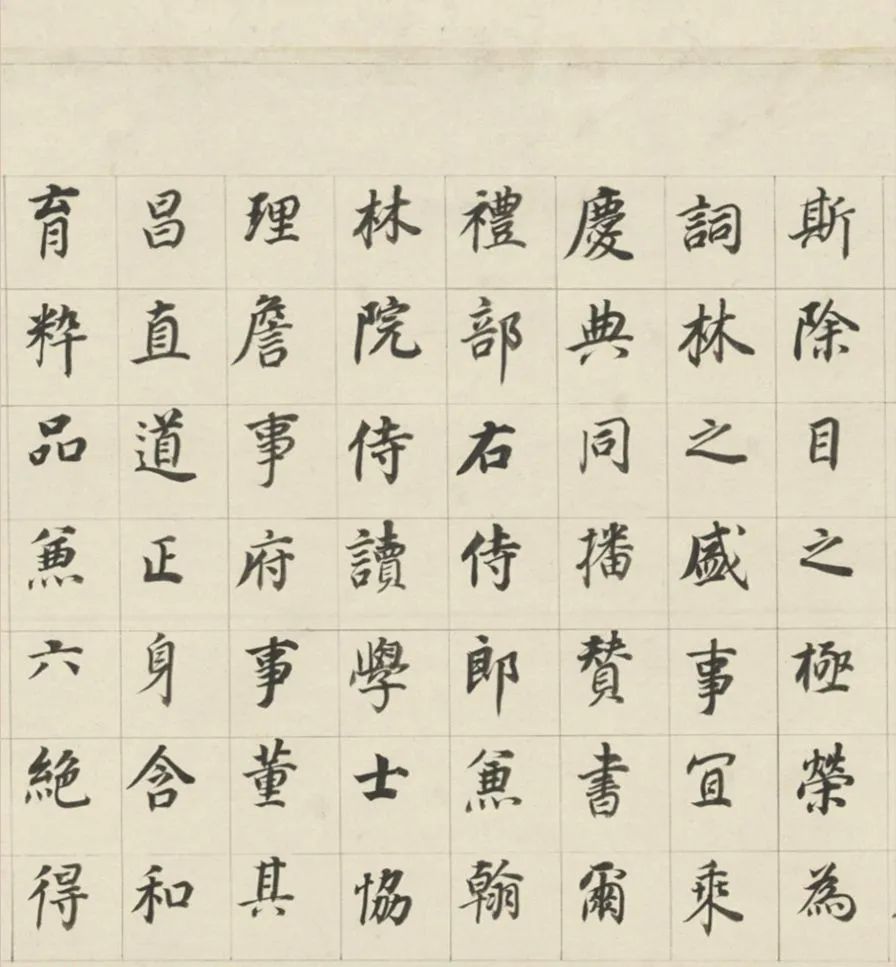 斯除目之極榮為
詞林之盛事宜乘
慶典同播賛書爾
禮部右侍郎兼翰
林院侍讀學士協
理詹事府事董其
昌直道正身含和
育粹品兼六絶得